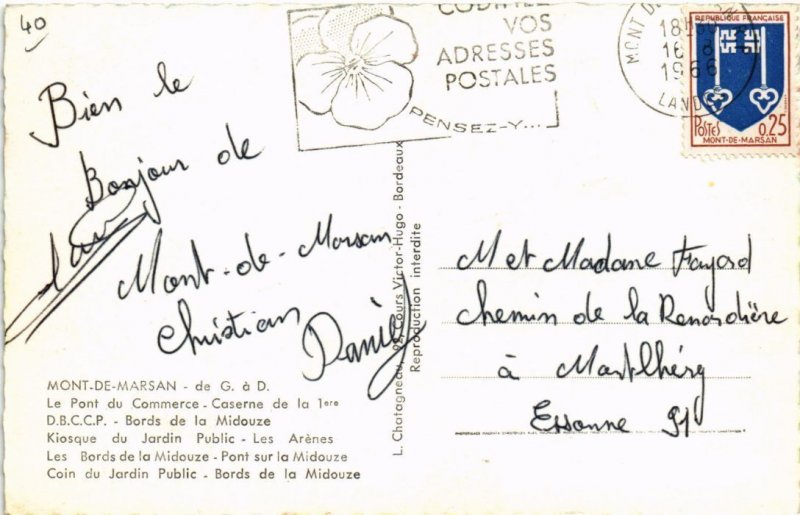 40
CODIFIEZ
VOS
ADRESSES
POSTALES
PENSEZ-Y...
MONT DE
18H
16 8
1966
LANDES
REPUBLIQUE FRANÇAISE
POSTES 0,25
MONT-DE-MARSAN
Bien le
Bonjour de
Mont-de-Marsan
Christian
Daniel
M et Madame Fayard
chemin de la Renardière
à Montlhéry
Essonne 91
L. Chatagneau, 92, Cours Victor-Hugo - Bordeaux
Reproduction interdite
MONT-DE-MARSAN - de G. à D.
Le Pont du Commerce - Caserne de la 1ere
D.B.C.C.P. - Bords de la Midouze
Kiosque du Jardin Public - Les Arènes
Les Bords de la Midouze - Pont sur la Midouze
Coin du Jardin Public - Bords de la Midouze